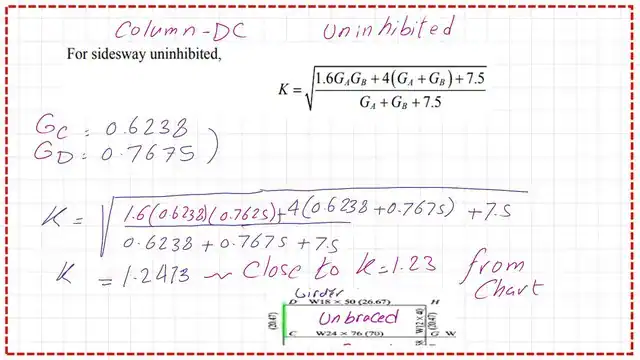 Column-DC Uninhibited
For sidesway uninhibited,
K = √(1.6G_A G_B + 4(G_A + G_B) + 7.5 / G_A + G_B + 7.5)
G_C = 0.6238
G_D = 0.7675 )
K = √(1.6(0.6238)(0.7625)+4(0.6238+0.7675) +7.5 / 0.6238+0.7675+7.5)
K = 1.2473 ~ Close to K=1.23 from
Chart
Girder
D W18 × 50 (26.67) H
(20.47) Unbraced W12 × 40 (20.47)
C W24 × 76 (70) G W